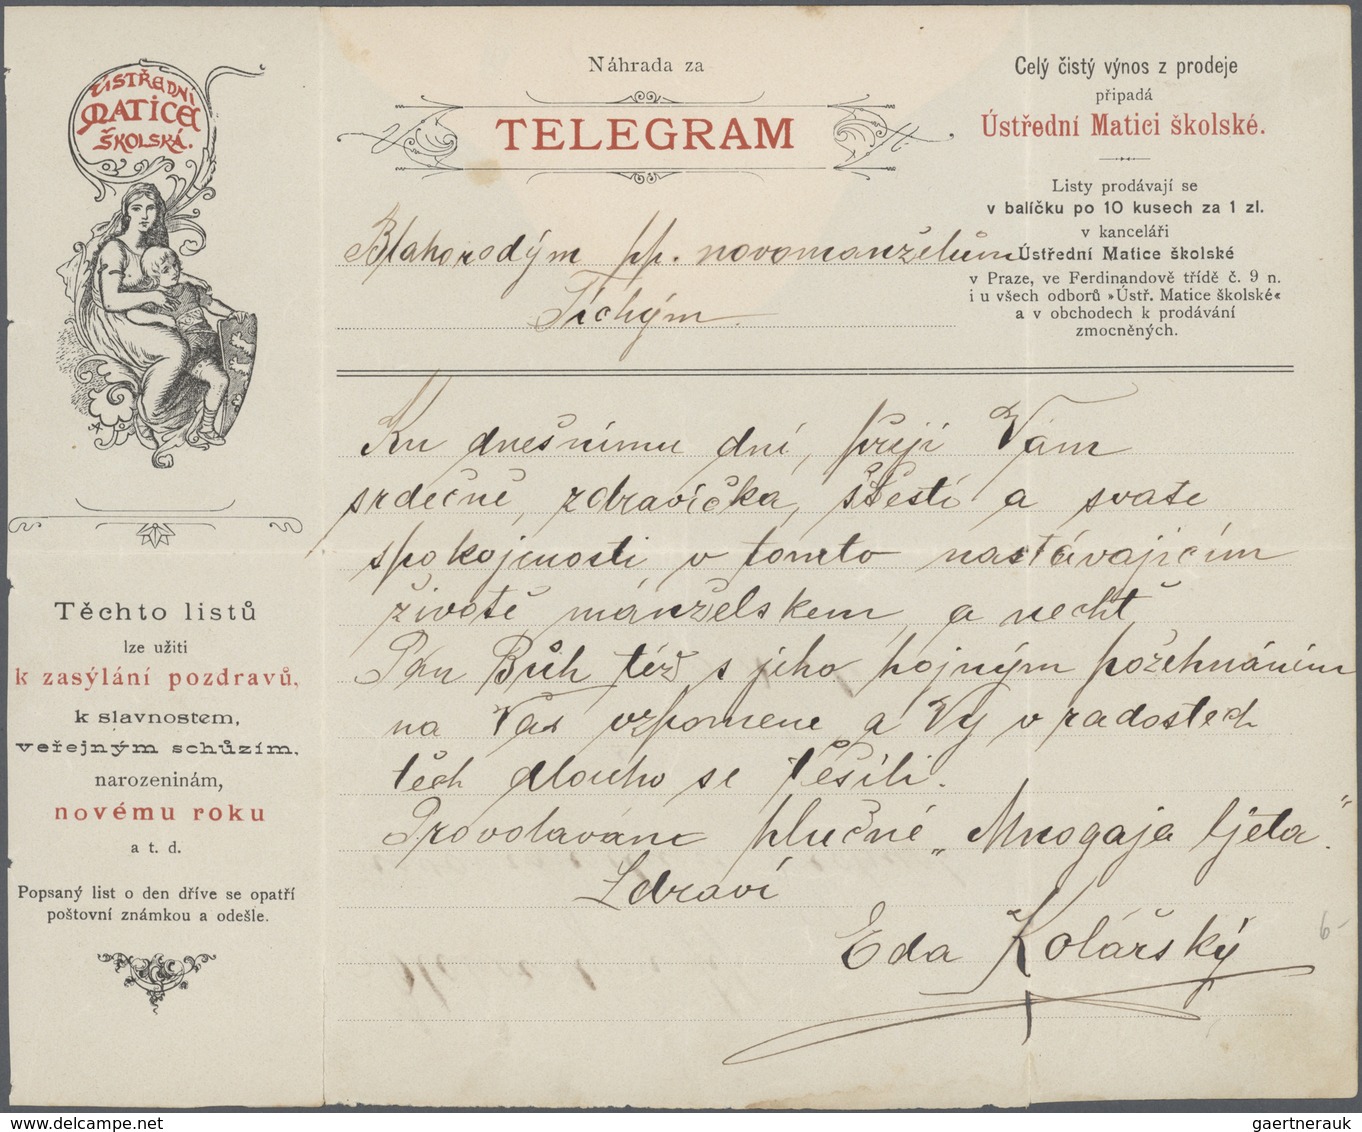 ÚSTŘEDNÍ
MATICE
ŠKOLSKÁ.
Náhrada za
TELEGRAM
Celý čistý výnos z prodeje
připadá
Ústřední Matici školské.
Listy prodávají se
v balíčku po 10 kusech za 1 zl.
v kanceláři
Ústřední Matice školské
v Praze, ve Ferdinandově třídě č. 9 n.
i u všech odborů »Ústř. Matice školské«
a v obchodech k prodávání
zmocněných.
Blahorodým pp. novomanželům
Tichým.
Ku dnešnímu dni, přeji Vám
srdečně, zdravíčka, štěstí a svaté
spokojenosti v tomto nastávajícím
životě manželském, a nechť
Pán Bůh též s jeho hojným požehnáním
na Vás vzpomene a Vy v radostech
těch dlouho se těšili.
Provolávám hlučné „Mnogaja ljeta."
Zdraví
Eda Kolářský
6-
Těchto listů
lze užiti
k zasýlání pozdravů,
k slavnostem,
veřejným schůzím,
narozeninám,
novému roku
a t. d.
Popsaný list o den dříve se opatří
poštovní známkou a odešle.
gaertnerauk @ delcampe.net